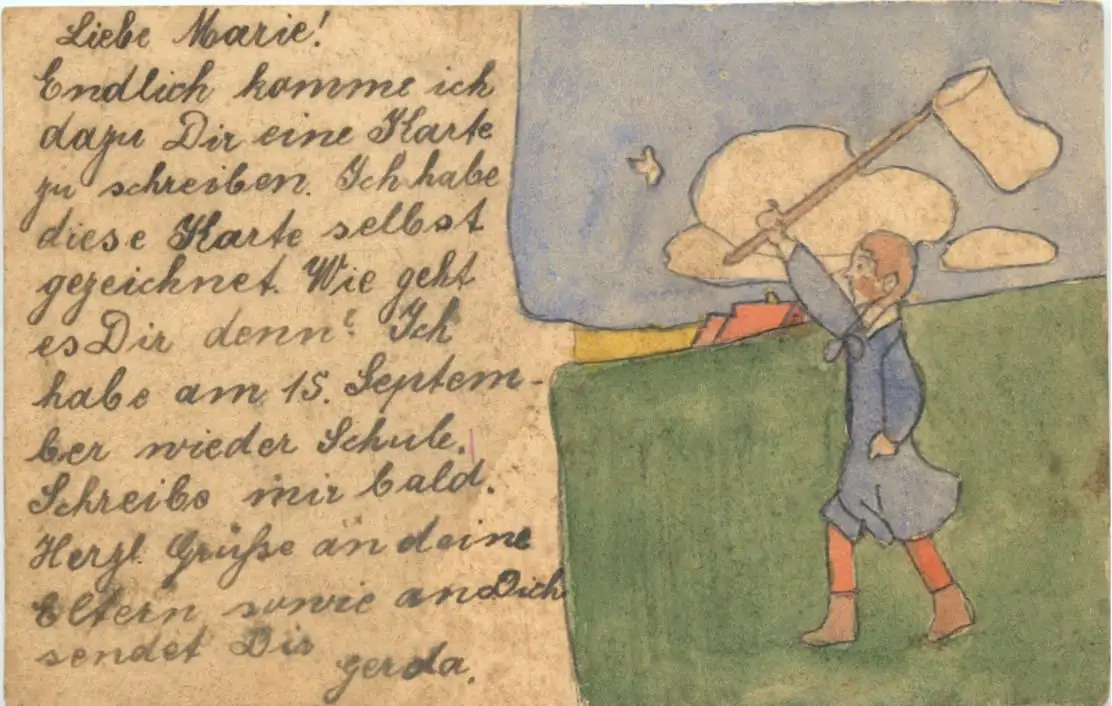 Liebe Marie!
Endlich komme ich
dazu Dir eine Karte
zu schreiben. Ich habe
diese Karte selbst
gezeichnet. Wie geht
es Dir denn? Ich
habe am 15. Septem-
ber wieder Schule.
Schreibe mir bald.
Herzl. Grüße an deine
Eltern sowie an Dich
sendet Dir
Gerda.